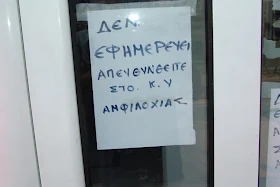 ΔΕΝ
ΕΦΗΜΕΡΕΥΕΙ
ΑΠΕΥΘΥΝΘΕΙΤΕ
ΣΤΟ. Κ.Υ
ΑΜΦΙΛΟΧΙΑΣ